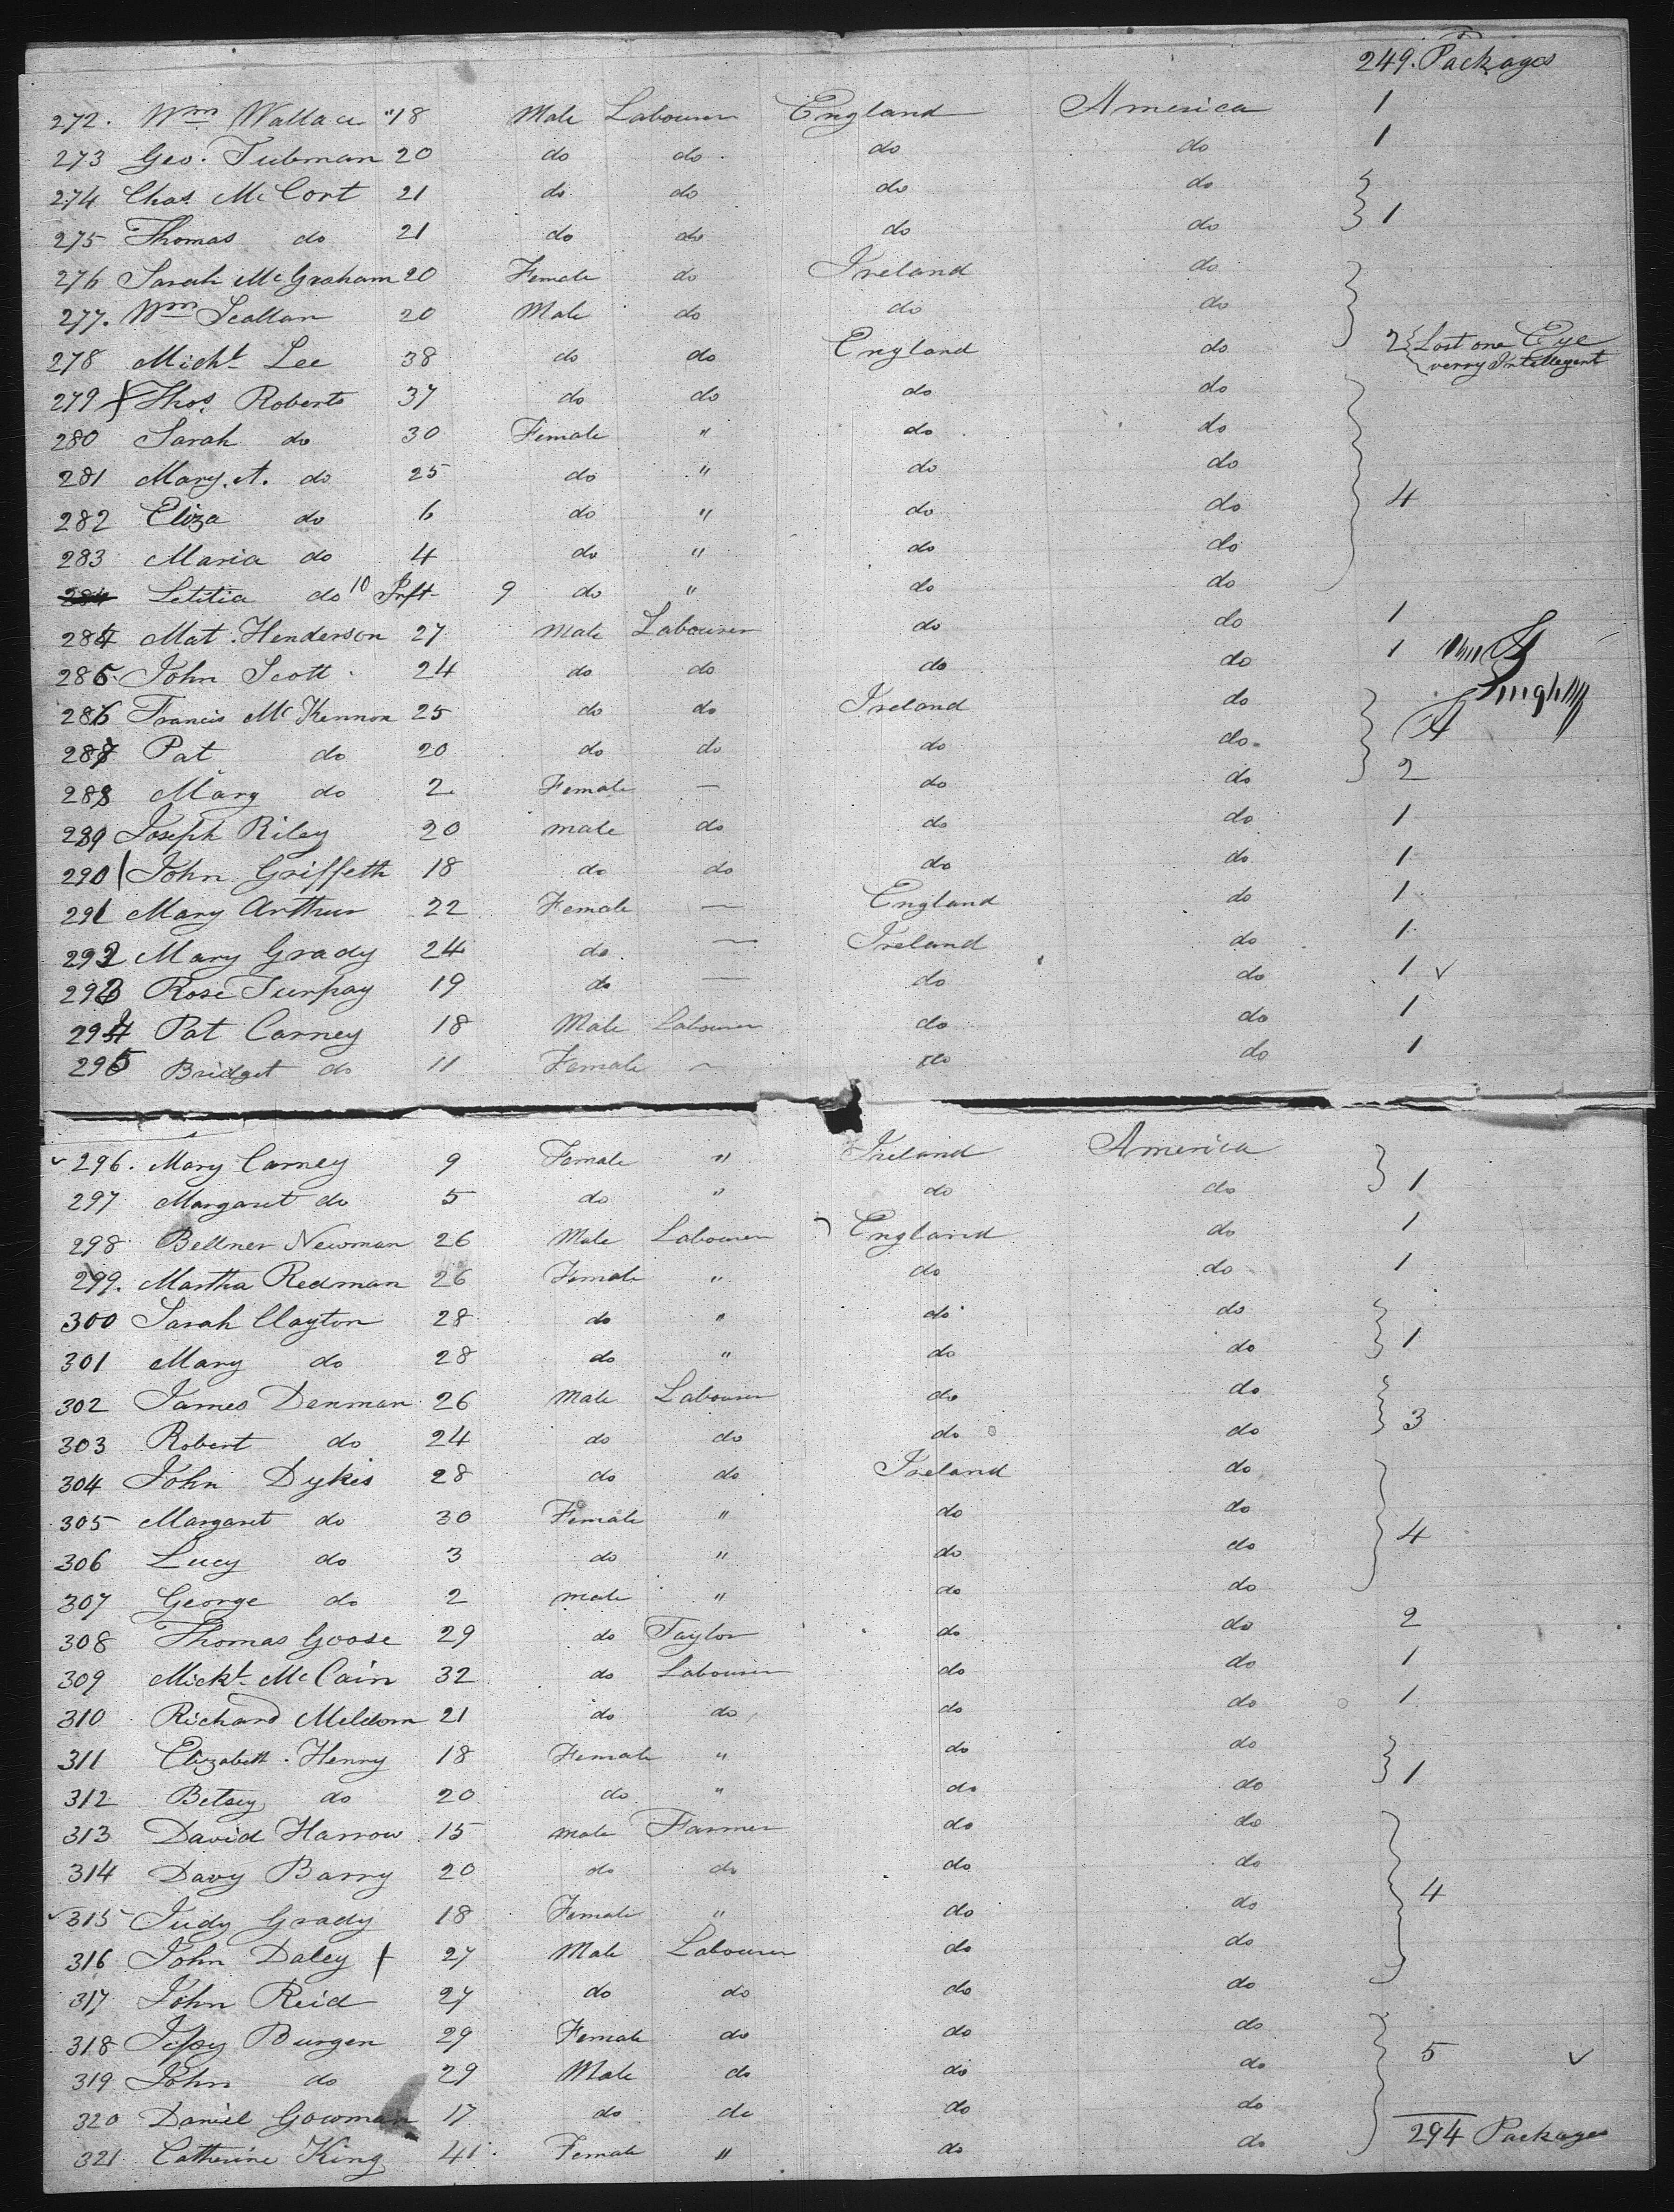 249. Packages
272. Wm Wallace "18 Male Labourer England America 1
273 Geo. Tubman 20 do do do do 1
274 Chas. McCort 21 do do do do
275 Thomas do 21 do do do do 1
276 Sarah McGraham 20 Female do Ireland do
277. Wm Scallan 20 Male do do do
278 Michl Lee 38 do do England do 2 { Lost one Eye
verry Intellegent
279 Thos. Roberts 37 do do do do
280 Sarah do 30 Female " do do
281 Mary. A. do 25 do " do do
282 Eliza do 6 do " do do 4
283 Maria do 4 do " do do
284 Letitia do 10 Inft 9 do " do do
284 Mat. Henderson 27 Male Labourer do do 1
285 John Scott 24 do do do do 1
286 Francis McKennon 25 do do Ireland do
287 Pat do 20 do do do do
288 Mary do 2 Female — do do 2
289 Joseph Riley 20 male do do do 1
290 John Griffeth 18 do do do do 1
291 Mary Arthur 22 Female — England do 1
292 Mary Grady 24 do — Ireland do 1
293 Rose Turpay 19 do — do do 1 ✓
294 Pat Carney 18 Male Labourer do do 1
295 Bridget do 11 Female ~ do do 1
✓ 296. Mary Carney 9 Female " Ireland America
297 Margaret do 5 do " do do 1
298 Bellner Newman 26 Male Labourer England do 1
299. Martha Redman 26 Female " do do 1
300 Sarah Clayton 28 do " do do
301 Mary do 28 do " do do 1
302 James Denman 26 Male Labourer do do
303 Robert do 24 do do do do 3
304 John Dykes 28 do do Ireland do
305 Margaret do 30 Female " do do
306 Lucy do 3 do " do do 4
307 George do 2 male " do do
308 Thomas Goose 29 do Taylor do do 2
309 Michl. McCain 32 do Labourer do do 1
310 Richard Meldom 21 do do do do 1
311 Elizabeth Henry 18 Female " do do
312 Betsey do 20 do " do do 1
313 David Harrow 15 male Farmer do do
314 Davy Barry 20 do do do do
✓ 315 Judy Grady 18 Female " do do 4
316 John Daley 27 Male Labourer do do
317 John Reid 27 do do do do
318 Burgen 29 Female do do do
319 John do 29 Male do do do 5 ✓
320 Daniel Gowman 17 do do do do
321 Catherine King 41 Female " do do 294 Packages